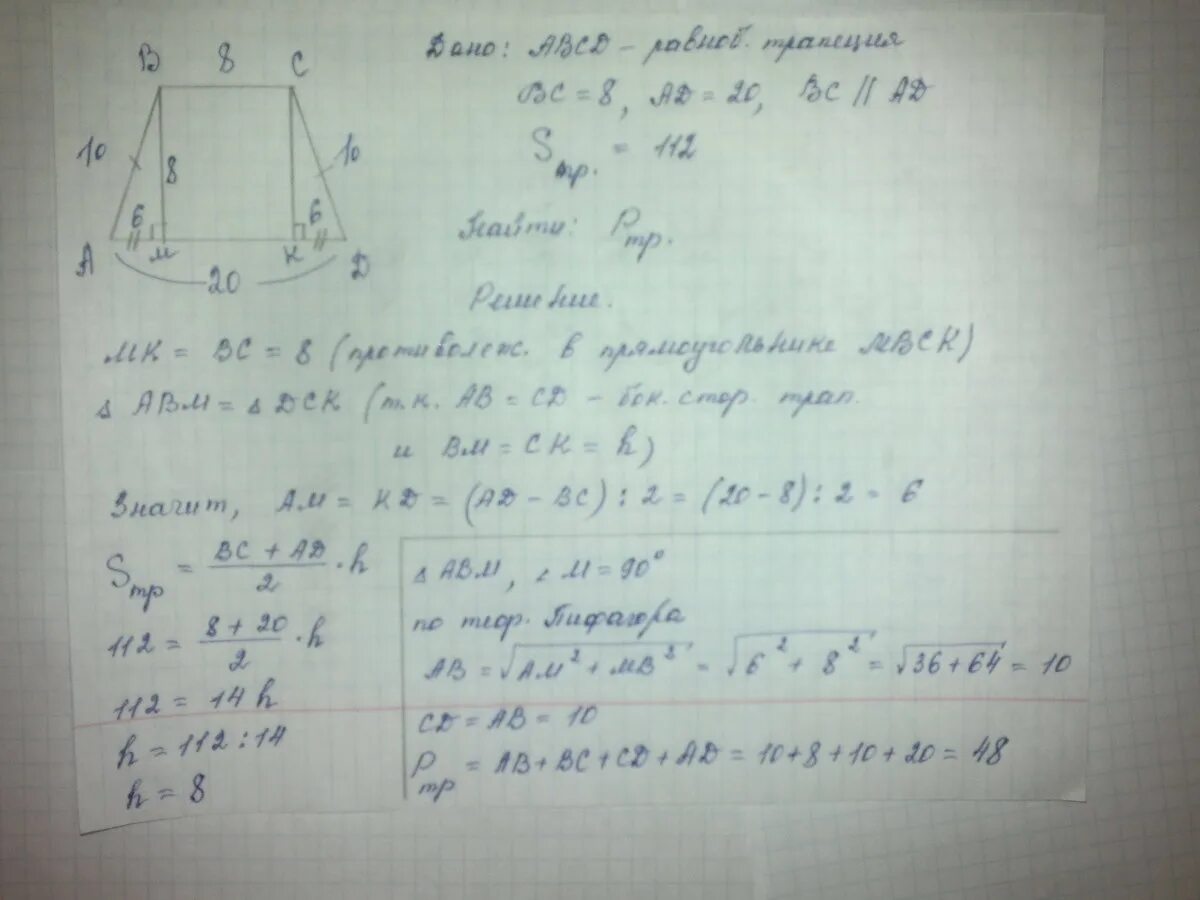 B 8 C
10 8 10
6 6
A M K D
20
Дано: ABCD – равноб. трапеция
BC = 8, AD = 20, BC || AD
Sтр. = 112
Найти: Pтр.
Решение.
MK = BC = 8 (противолеж. в прямоугольнике MBCK)
△ ABM = △ DCK (т.к. AB = CD – бок. стор. трап.
и BM = CK = h)
Значит, AM = KD = (AD – BC) : 2 = (20 – 8) : 2 = 6
Sтр = (BC + AD)/2 · h
112 = (8 + 20)/2 · h
112 = 14 h
h = 112 : 14
h = 8
△ ABM, ∠ M = 90°
по теор. Пифагора
AB = √(AM² + MB²) = √(6² + 8²) = √(36 + 64) = 10
CD = AB = 10
Pтр = AB + BC + CD + AD = 10 + 8 + 10 + 20 = 48